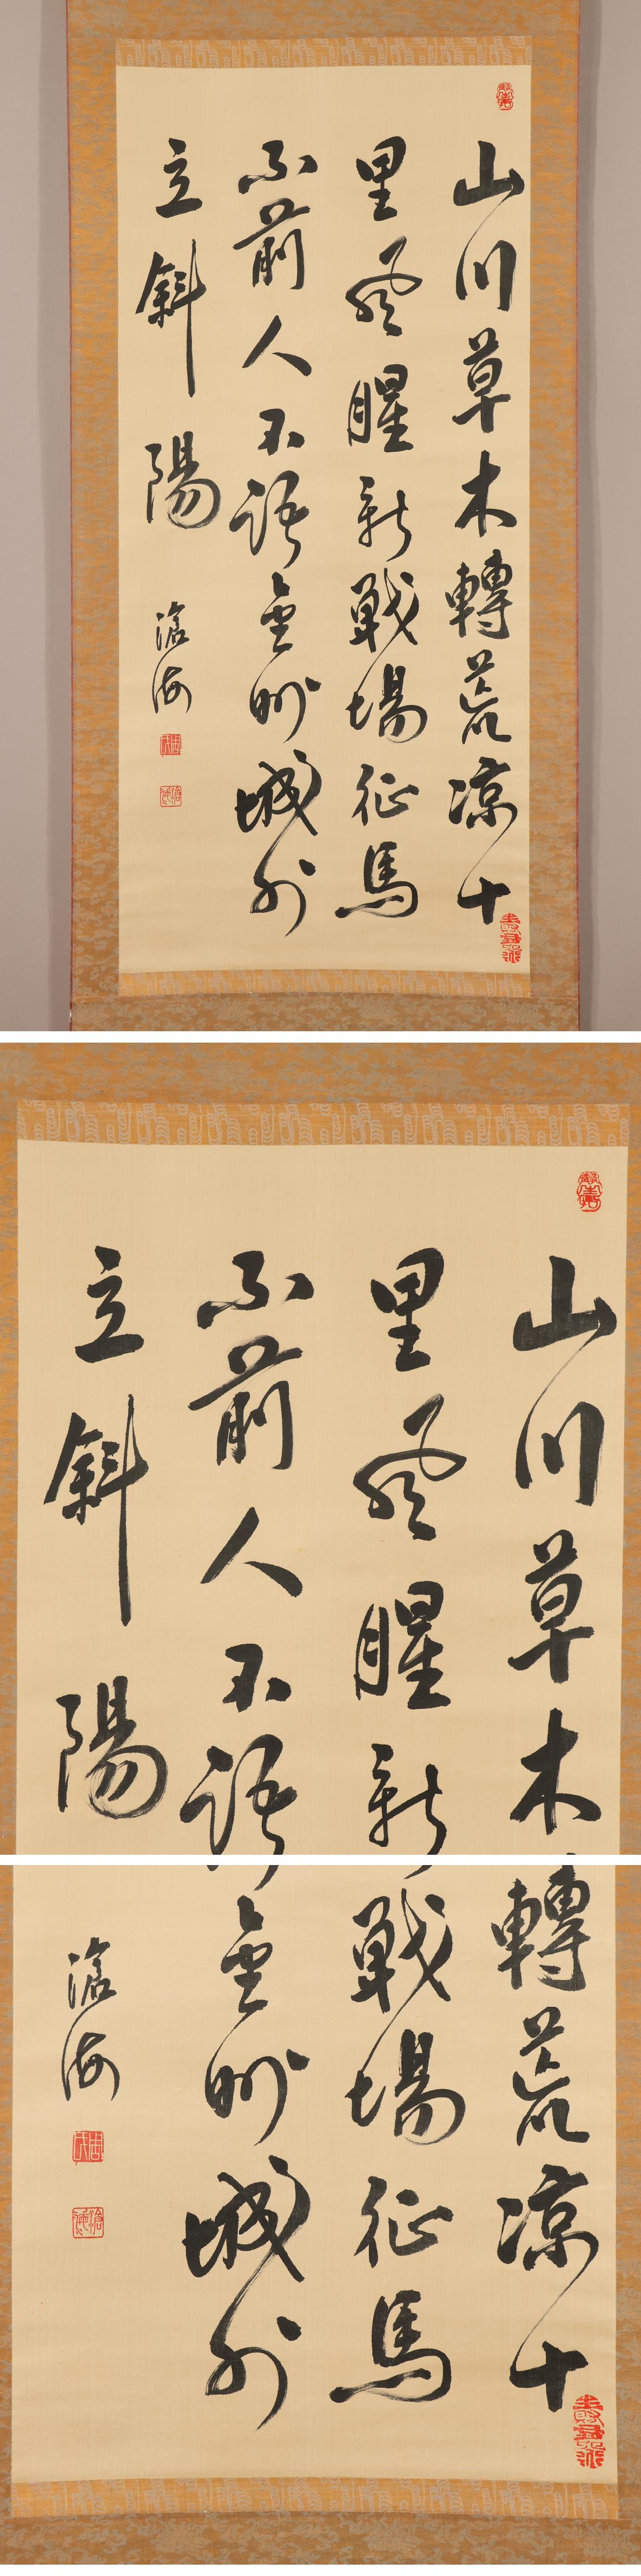 山川草木轉荒凉十
里風腥新戦場征馬
不前人不語金州城外
立斜陽
滄海
山川草木
里風腥新
不前人不語
立斜陽
轉荒凉十
戦場征馬
金州城外
滄海